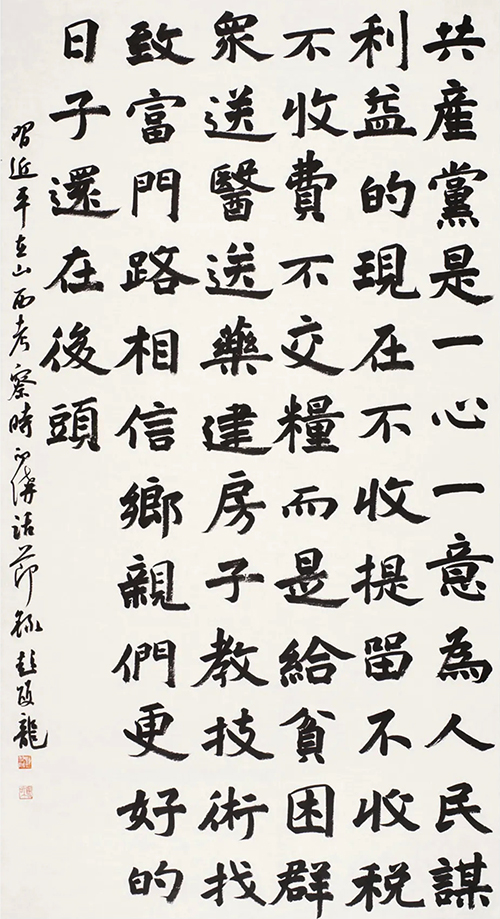 共産黨是一心一意為人民謀
利益的現在不收提留不收税
不收費不交糧而是給貧困群
衆送醫送藥建房子教技術找
致富門路相信鄉親們更好的
日子還在後頭
習近平在山西考察時的講話節錄 龍